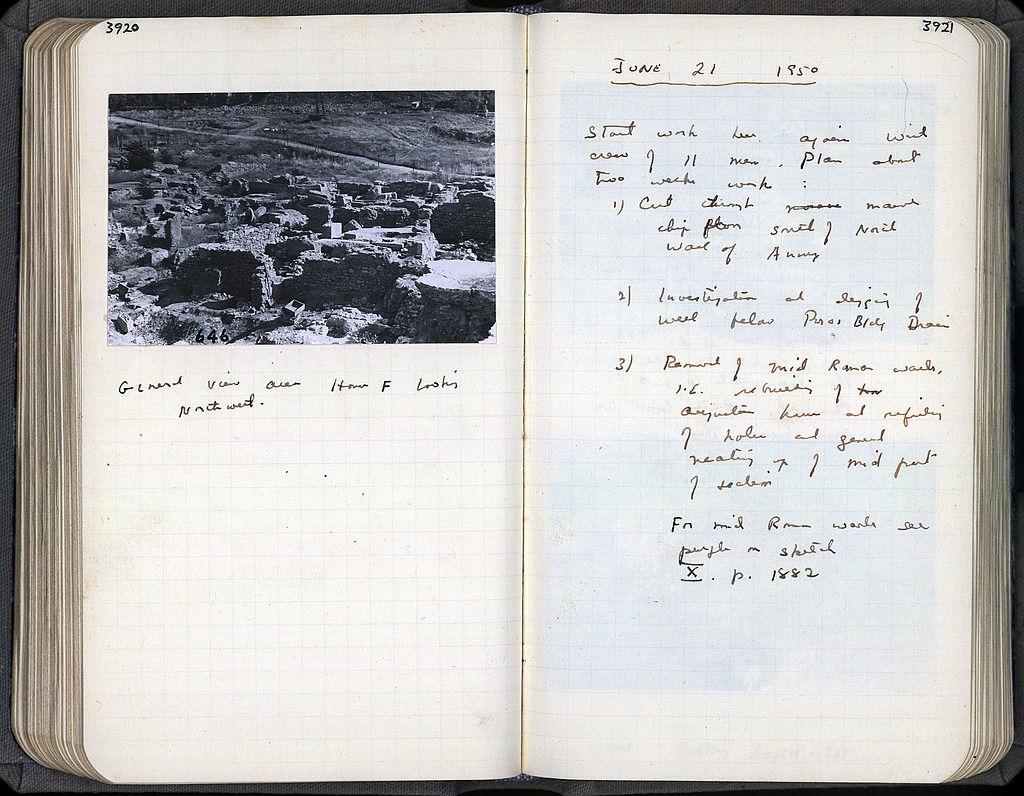 3920
646
General view over House F looking
Northwest.
3921
JUNE 21 1950
Start work here again with
crew of 11 men. Plan about
two weeks work :
1) Cut through marble
chip floor south of North
wall of Annex
2) Investigation and digging of
well below Poros Bldg Drain
3) Removal of mid Roman walls,
I.E. rebuilding of
and refilling
of holes and general
neating up of mid part
of section
For mid Roman walls see
purple on sketch
X. p. 1882